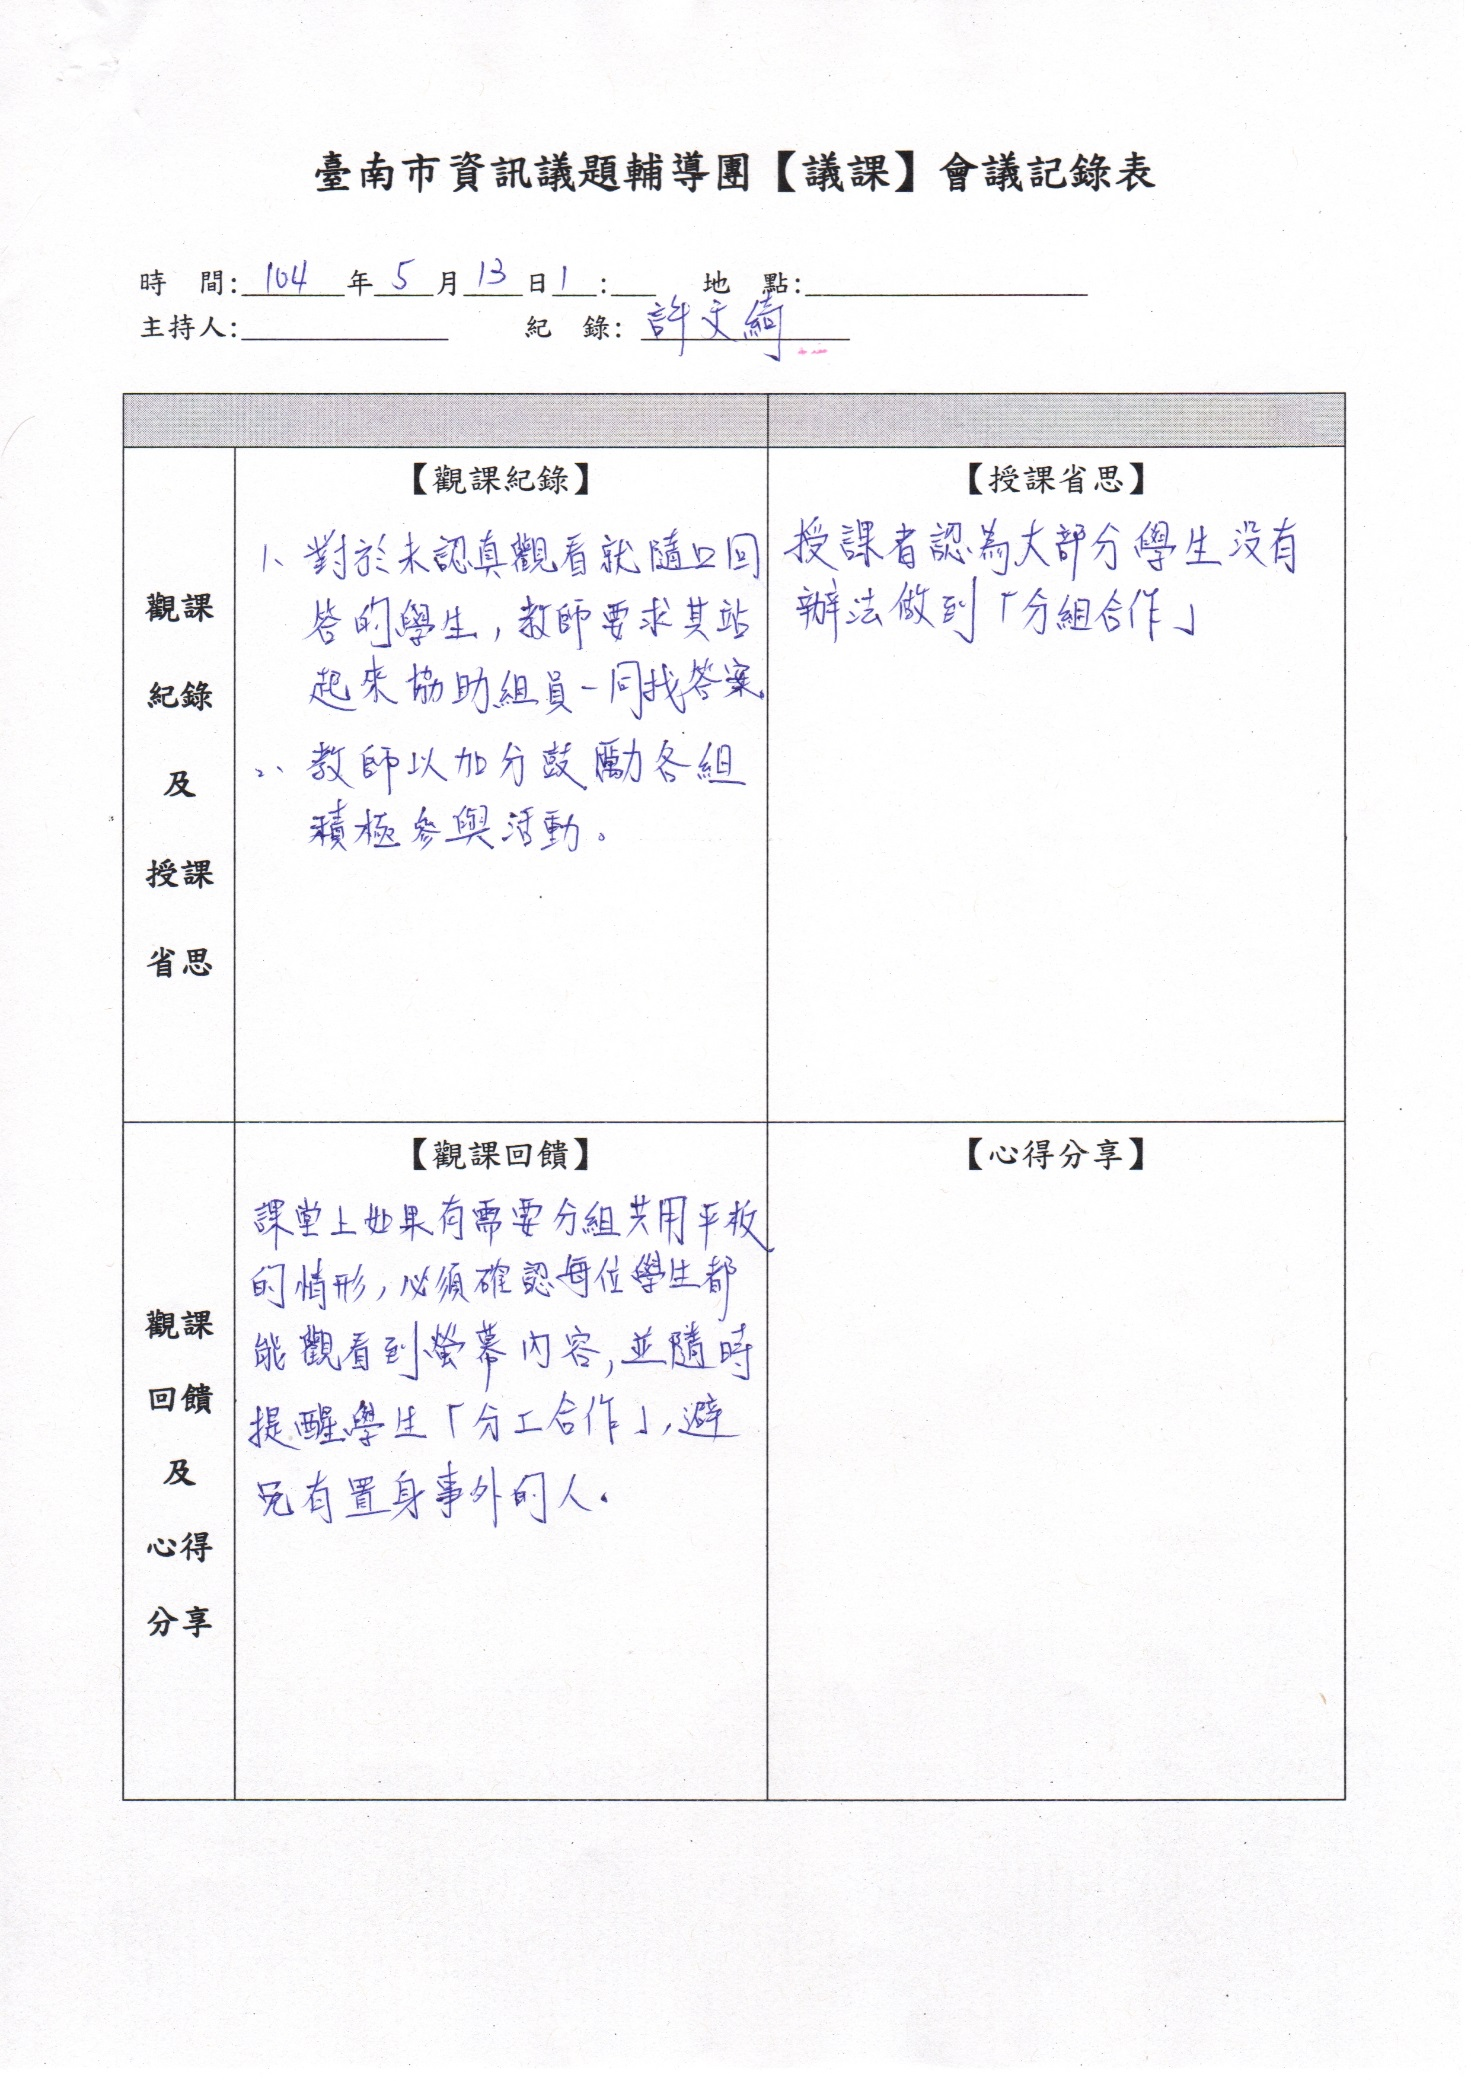 臺南市資訊議題輔導團【議課】會議記錄表
時 間:104年5月13日1: 地 點:
主持人: 紀 錄:許文綺
觀課
紀錄
及
授課
省思
【觀課紀錄】
1、對於未認真觀看就隨口回
答的學生,教師要求其站
起來協助組員一同找答案
2、教師以加分鼓勵各組
積極參與活動。
【授課省思】
授課者認為大部分學生沒有
辦法做到「分組合作」
觀課
回饋
及
心得
分享
【觀課回饋】
課堂上如果有需要分組共用平板
的情形,必須確認每位學生都
能觀看到螢幕內容,並隨時
提醒學生「分工合作」,避
免有置身事外的人.
【心得分享】